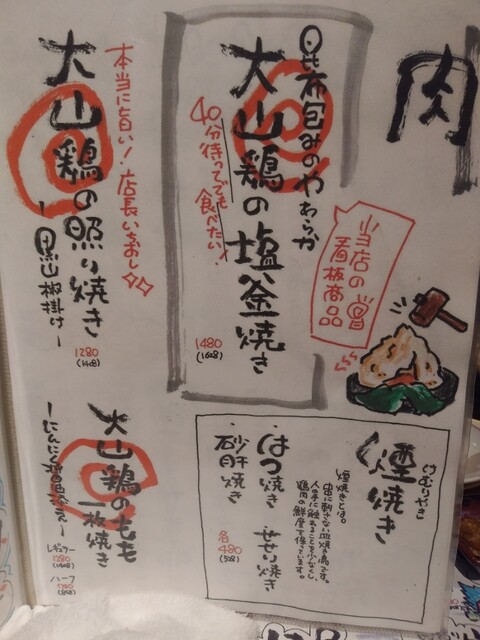 肉
昆布包みのやわらか
大山鶏の塩釜焼き
40分待ってでも
食べたい!
1480
(1628)
当店の
看板商品
本当に旨い!店長いちおし
大山鶏の照り焼き
ー黒山椒掛けー
1280
(1408)
煙焼き
けむりやき
煙焼きとは。
串に刺さない
人の手に触れることを少なくし、
鶏肉の鮮度を保っています。
はつ焼き
せせり焼き
砂肝焼き
各
480
(528)
大山鶏のもも
一枚焼き
レギュラー
1280
(1408)
ハーフ